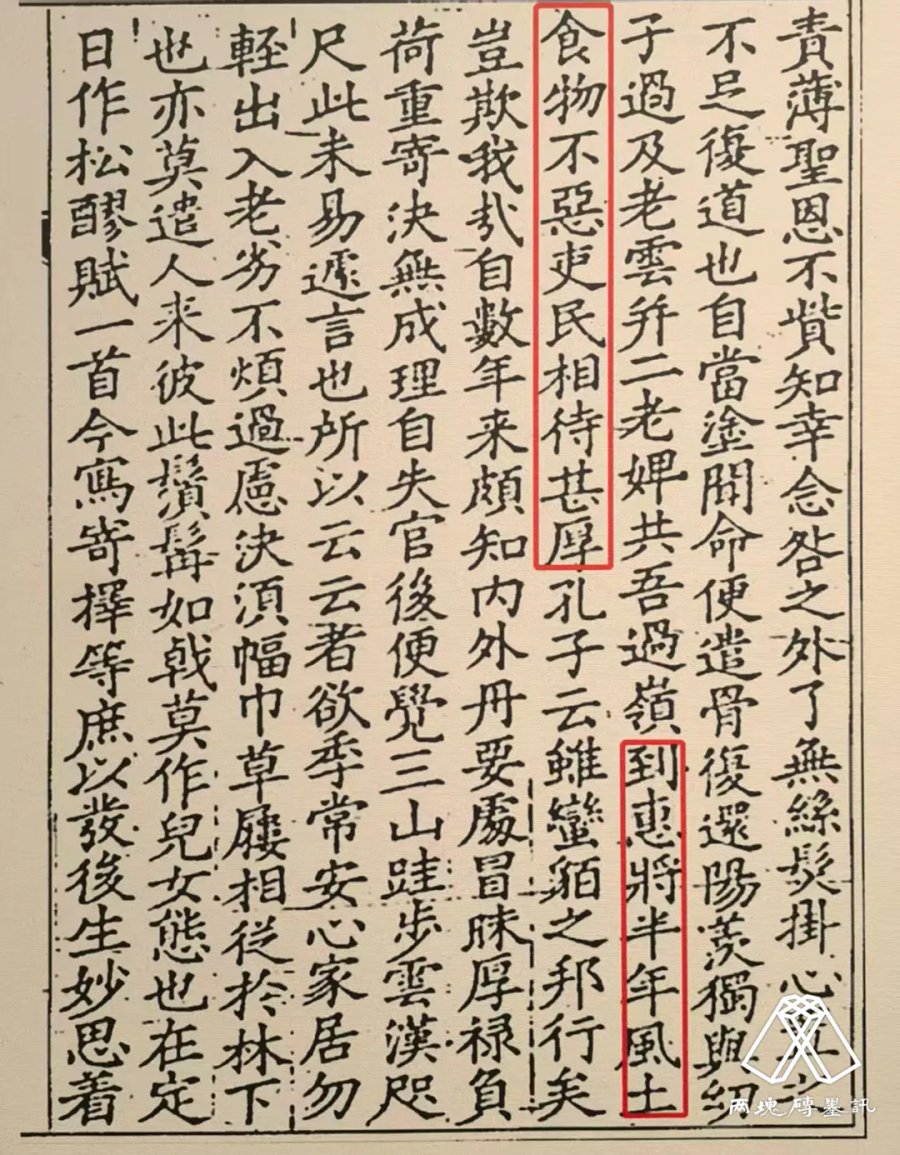 責薄聖恩不貲知幸念咎之外了無絲髮掛心
不足復道也自當塗聞命便遣骨復還陽羨獨與幼
子過及老雲并二老婢共吾過嶺到惠將半年風土
食物不惡吏民相待甚厚孔子云雖蠻貊之邦行矣
豈欺我哉自數年来頗知内外丹要處冒昧厚禄負
荷重寄決無成理自失官後便覺三山跬步雲漢咫
尺此未易遽言也所以云云者欲季常安心家居勿
輕出入老劣不煩過慮決須幅巾草屨相從於林下
也亦莫遣人来彼此鬚髯如戟莫作兒女態也在定
日作松醪賦一首今寫寄擇等庶以發後生妙思着
两塊磚墨訊